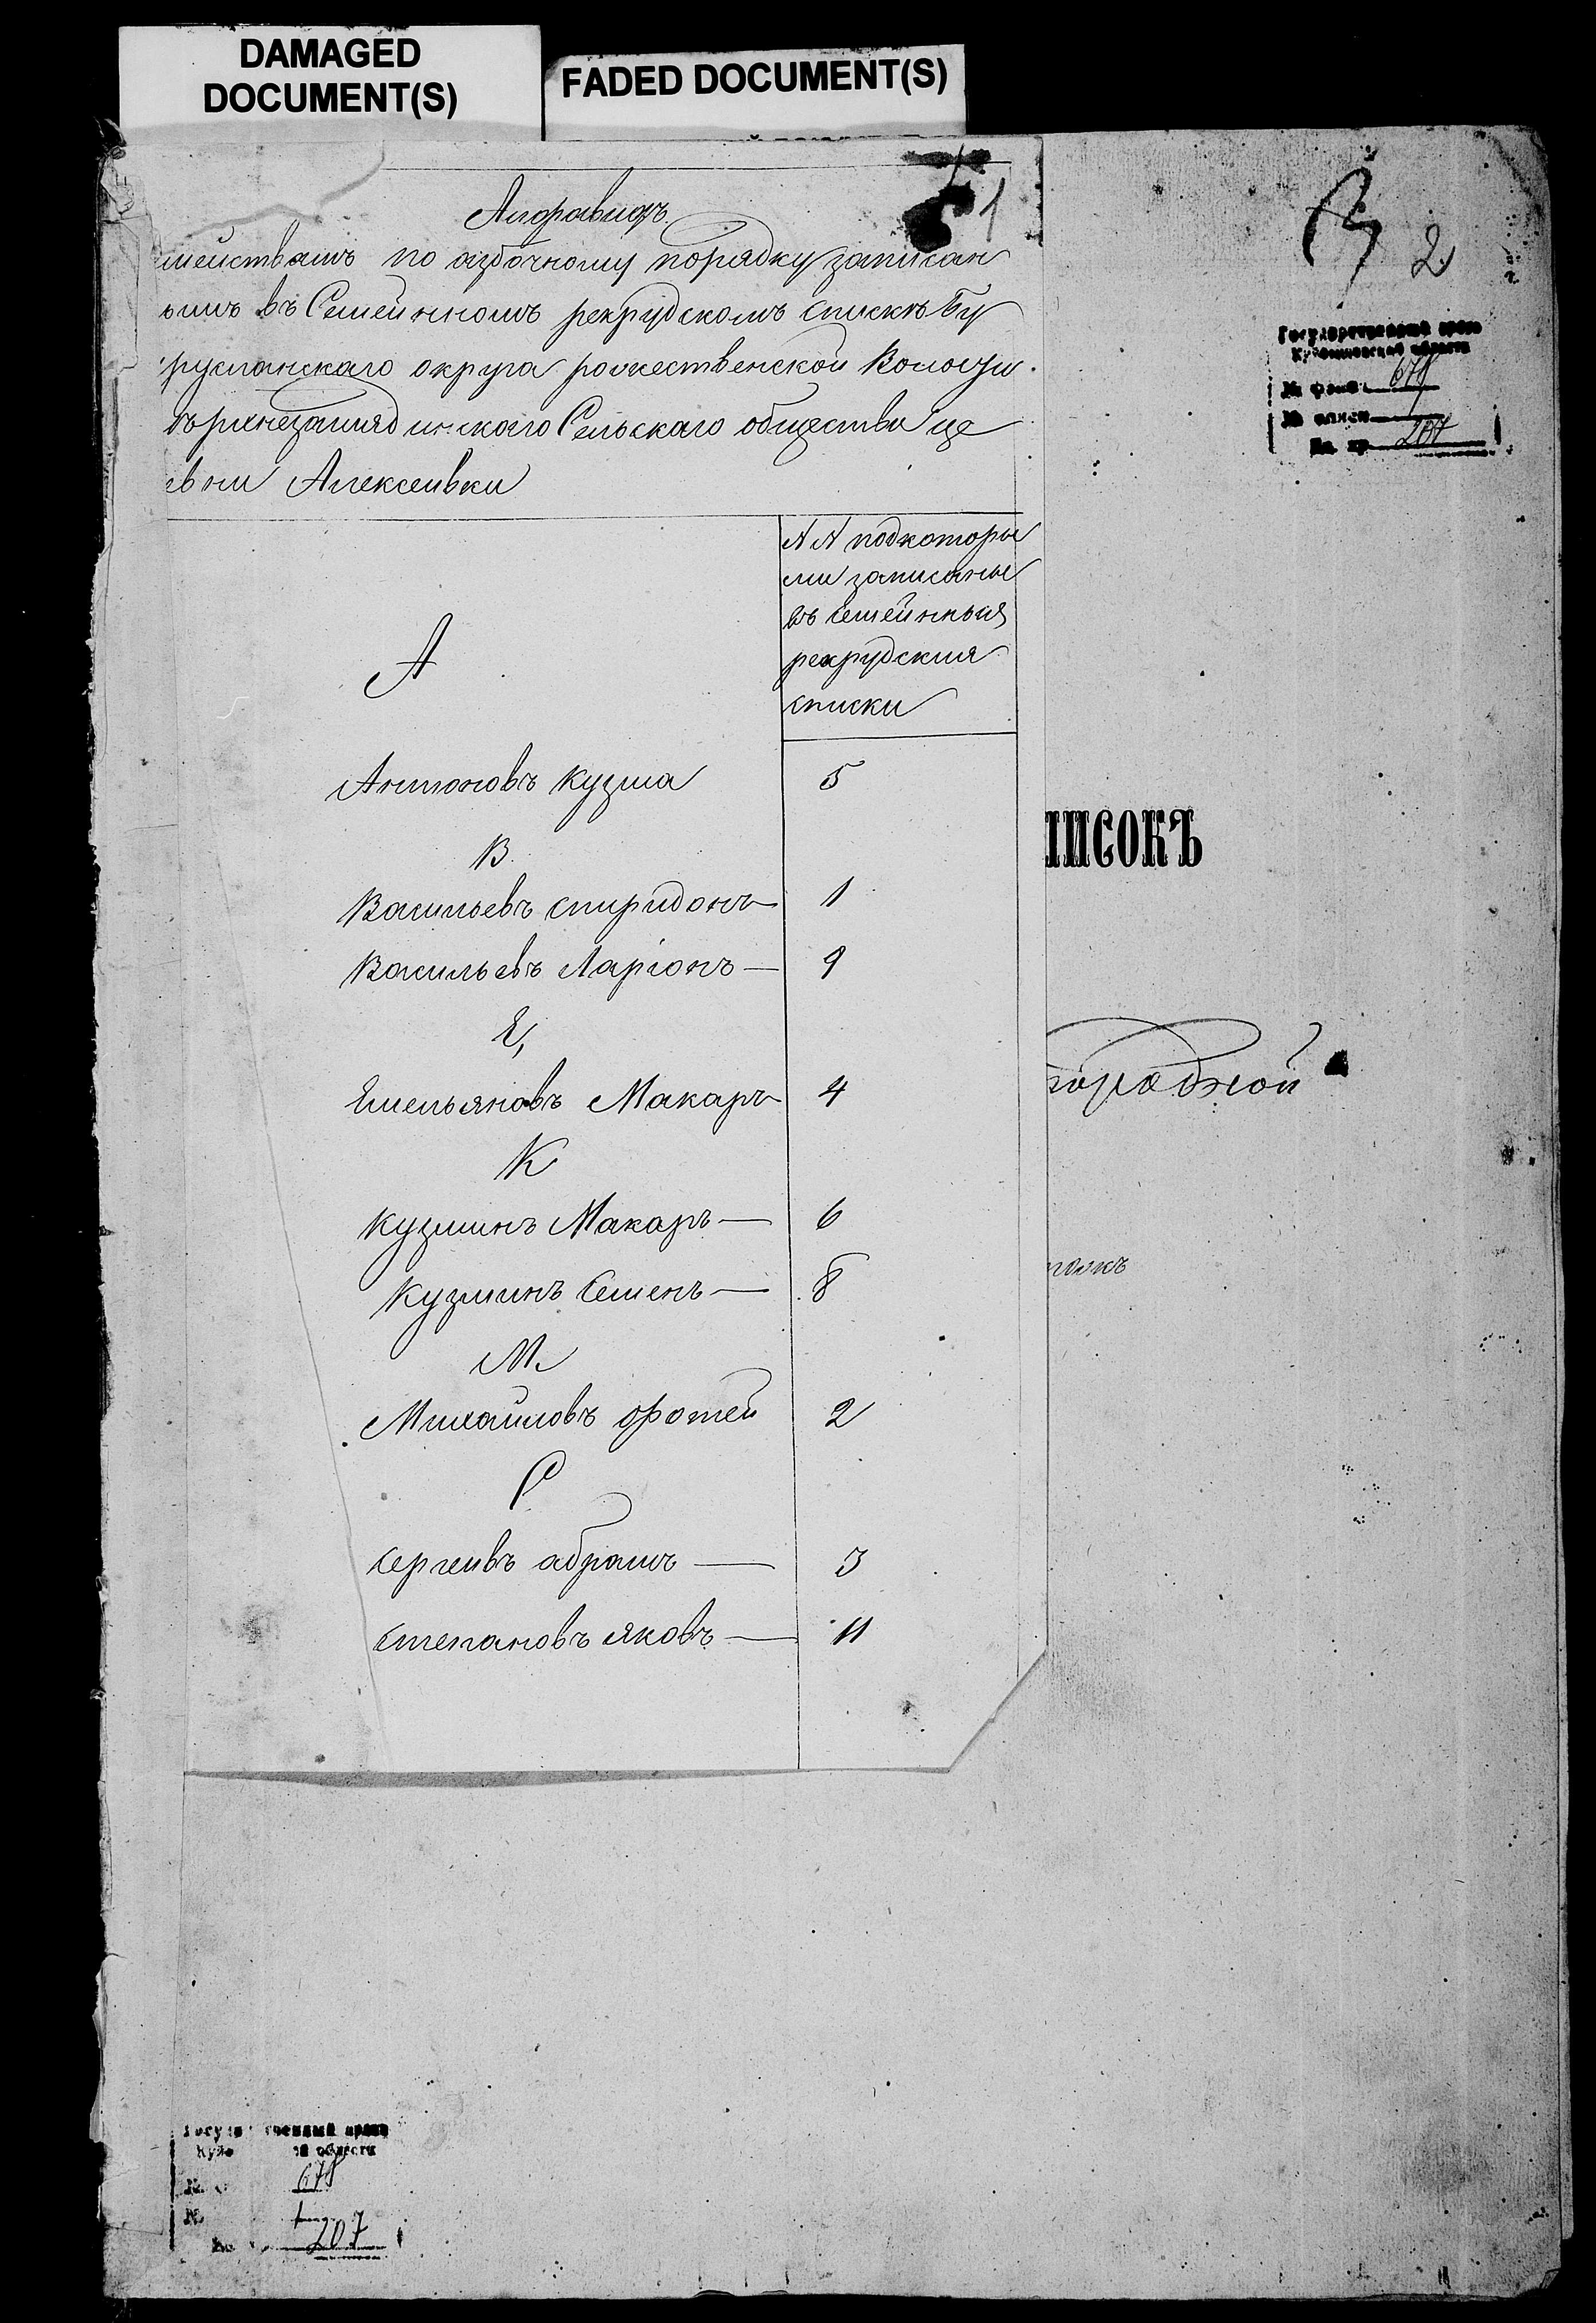 DAMAGED
DOCUMENT(S)
FADED DOCUMENT(S)
1
Алфавитъ
мействамъ по азбочному порядку записан
ымъ въ Семейномъ рекрудскомъ спискѣ Бу
русланскаго округа рожественской Волости
Сельскаго общества
Алексеивки
подкоторы
ми записаны
въ семейныя
рекрудския
списки
А
Антоновъ кузма 5
В
Васильевъ спиридонъ 1
Васильевъ Ларіонъ — 9
Е,
Емельяновъ Макаръ 4
К
кузминъ Макаръ — 6
кузминъ Семенъ — 8
М
Михайловъ фотей 2
С
сергеивъ абрамъ — 3
степановъ яковъ — 11
2
Государственный архив
Куйбышевской области
№ фонда 678
№ описи 1
207
ПИСОКЪ
городной
Государственный архив
Куйб ой области
678
1
207